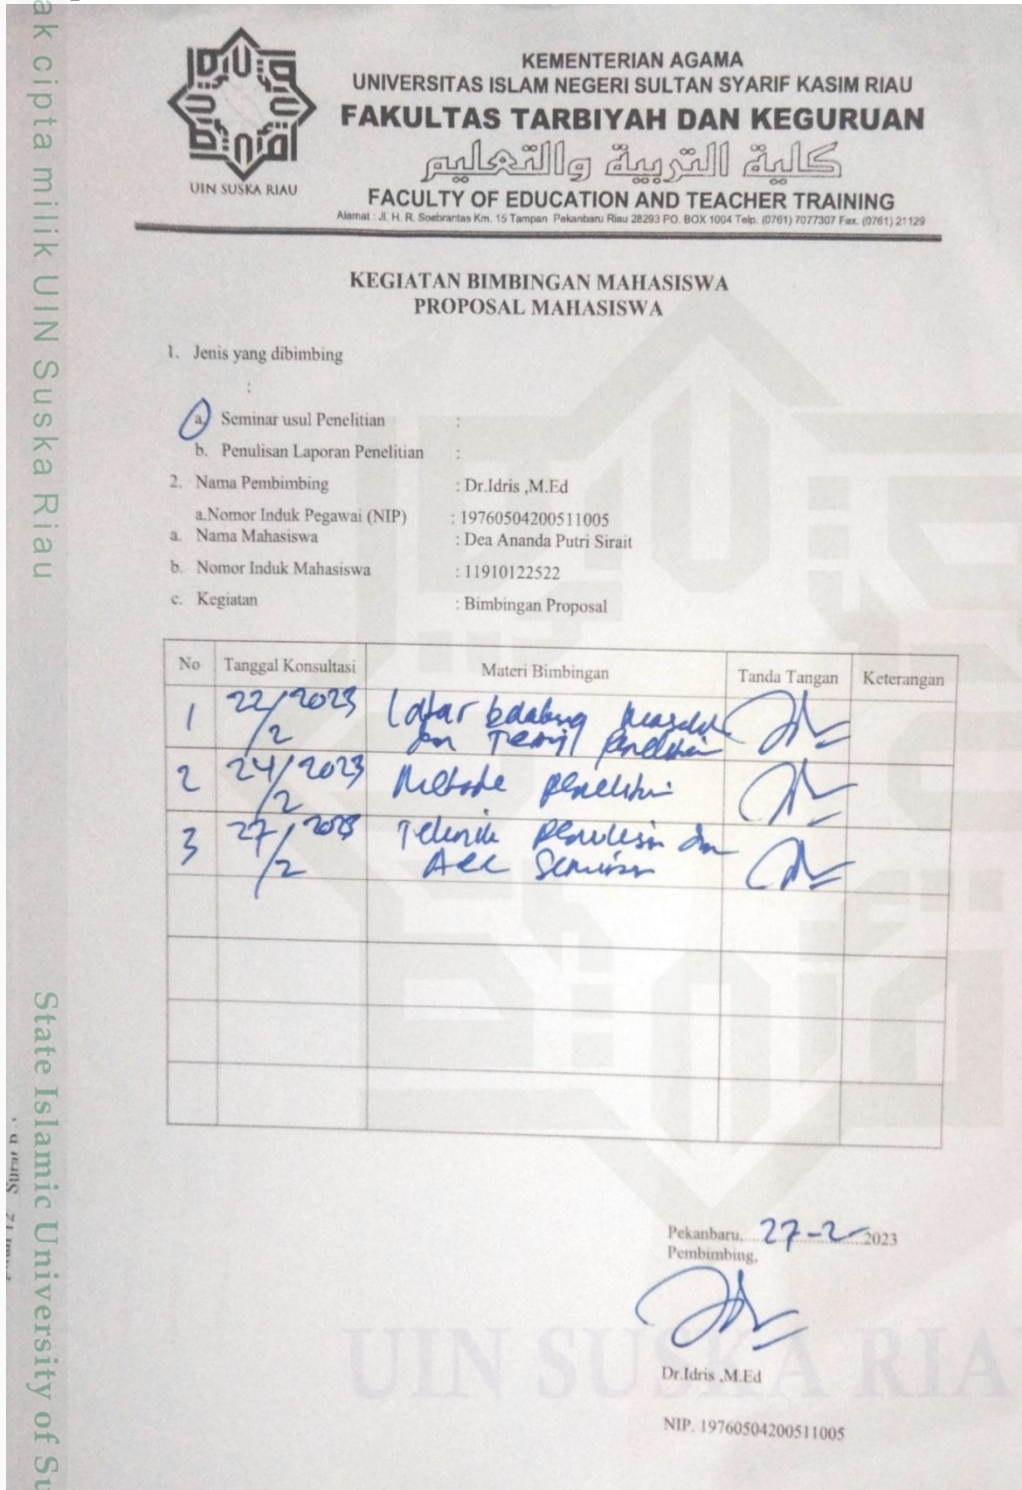 ak cipta milik UIN Suska Riau
State Islamic University of Su
UIN SUSKA RIAU
KEMENTERIAN AGAMA
UNIVERSITAS ISLAM NEGERI SULTAN SYARIF KASIM RIAU
FAKULTAS TARBIYAH DAN KEGURUAN
كلية التربية والتعليم
FACULTY OF EDUCATION AND TEACHER TRAINING
Alamat : Jl. H. R. Soebrantas Km. 15 Tampan Pekanbaru Riau 28293 PO. BOX 1004 Telp. (0761) 7077307 Fax. (0761) 21129
KEGIATAN BIMBINGAN MAHASISWA
PROPOSAL MAHASISWA
1. Jenis yang dibimbing
:
a. Seminar usul Penelitian :
b. Penulisan Laporan Penelitian :
2. Nama Pembimbing : Dr.Idris ,M.Ed
a.Nomor Induk Pegawai (NIP) : 19760504200511005
a. Nama Mahasiswa : Dea Ananda Putri Sirait
b. Nomor Induk Mahasiswa : 11910122522
c. Kegiatan : Bimbingan Proposal
No Tanggal Konsultasi Materi Bimbingan Tanda Tangan Keterangan
1 22/2 2023 Latar belakang masalah
dan penelitian
2 24/2 2023 Metode penelitian
3 27/2 2023 Teknik penulisan dan
Acc Seminar
Pekanbaru, 27-2-2023
Pembimbing,
Dr.Idris ,M.Ed
NIP. 19760504200511005
UIN SUSKA RIA